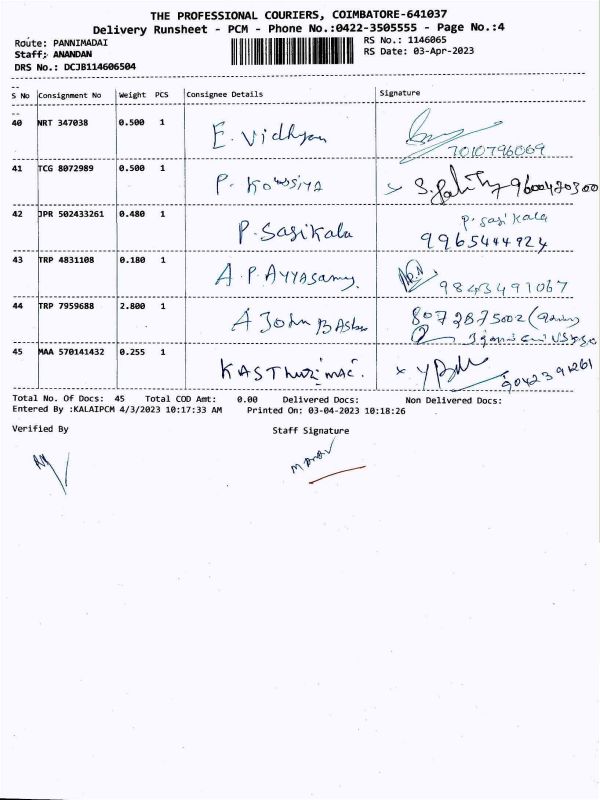 THE PROFESSIONAL COURIERS, COIMBATORE-641037
Delivery Runsheet - PCM - Phone No.:0422-3505555 - Page No.:4
Route: PANNIMADAI RS No.: 1146065
Staff: ANANDAN RS Date: 03-Apr-2023
DRS No.: DCJB114606504
S No Consignment No Weight PCS Consignee Details Signature
40 NRT 347038 0.500 1 E. Vidhya 7010796069
41 TCG 8072989 0.500 1 P. Kowsiya 9600420300
42 JPR 502433261 0.480 1 P. Sasikala P. Sasikala
9965444924
43 TRP 4831108 0.180 1 A.P. Ayyasamy. 9843491067
44 TRP 7959688 2.800 1 A John 8072875002
45 MAA 570141432 0.255 1 9042391261
Total No. Of Docs: 45 Total COD Amt: 0.00 Delivered Docs: Non Delivered Docs:
Entered By :KALAIPCM 4/3/2023 10:17:33 AM Printed On: 03-04-2023 10:18:26
Verified By Staff Signature